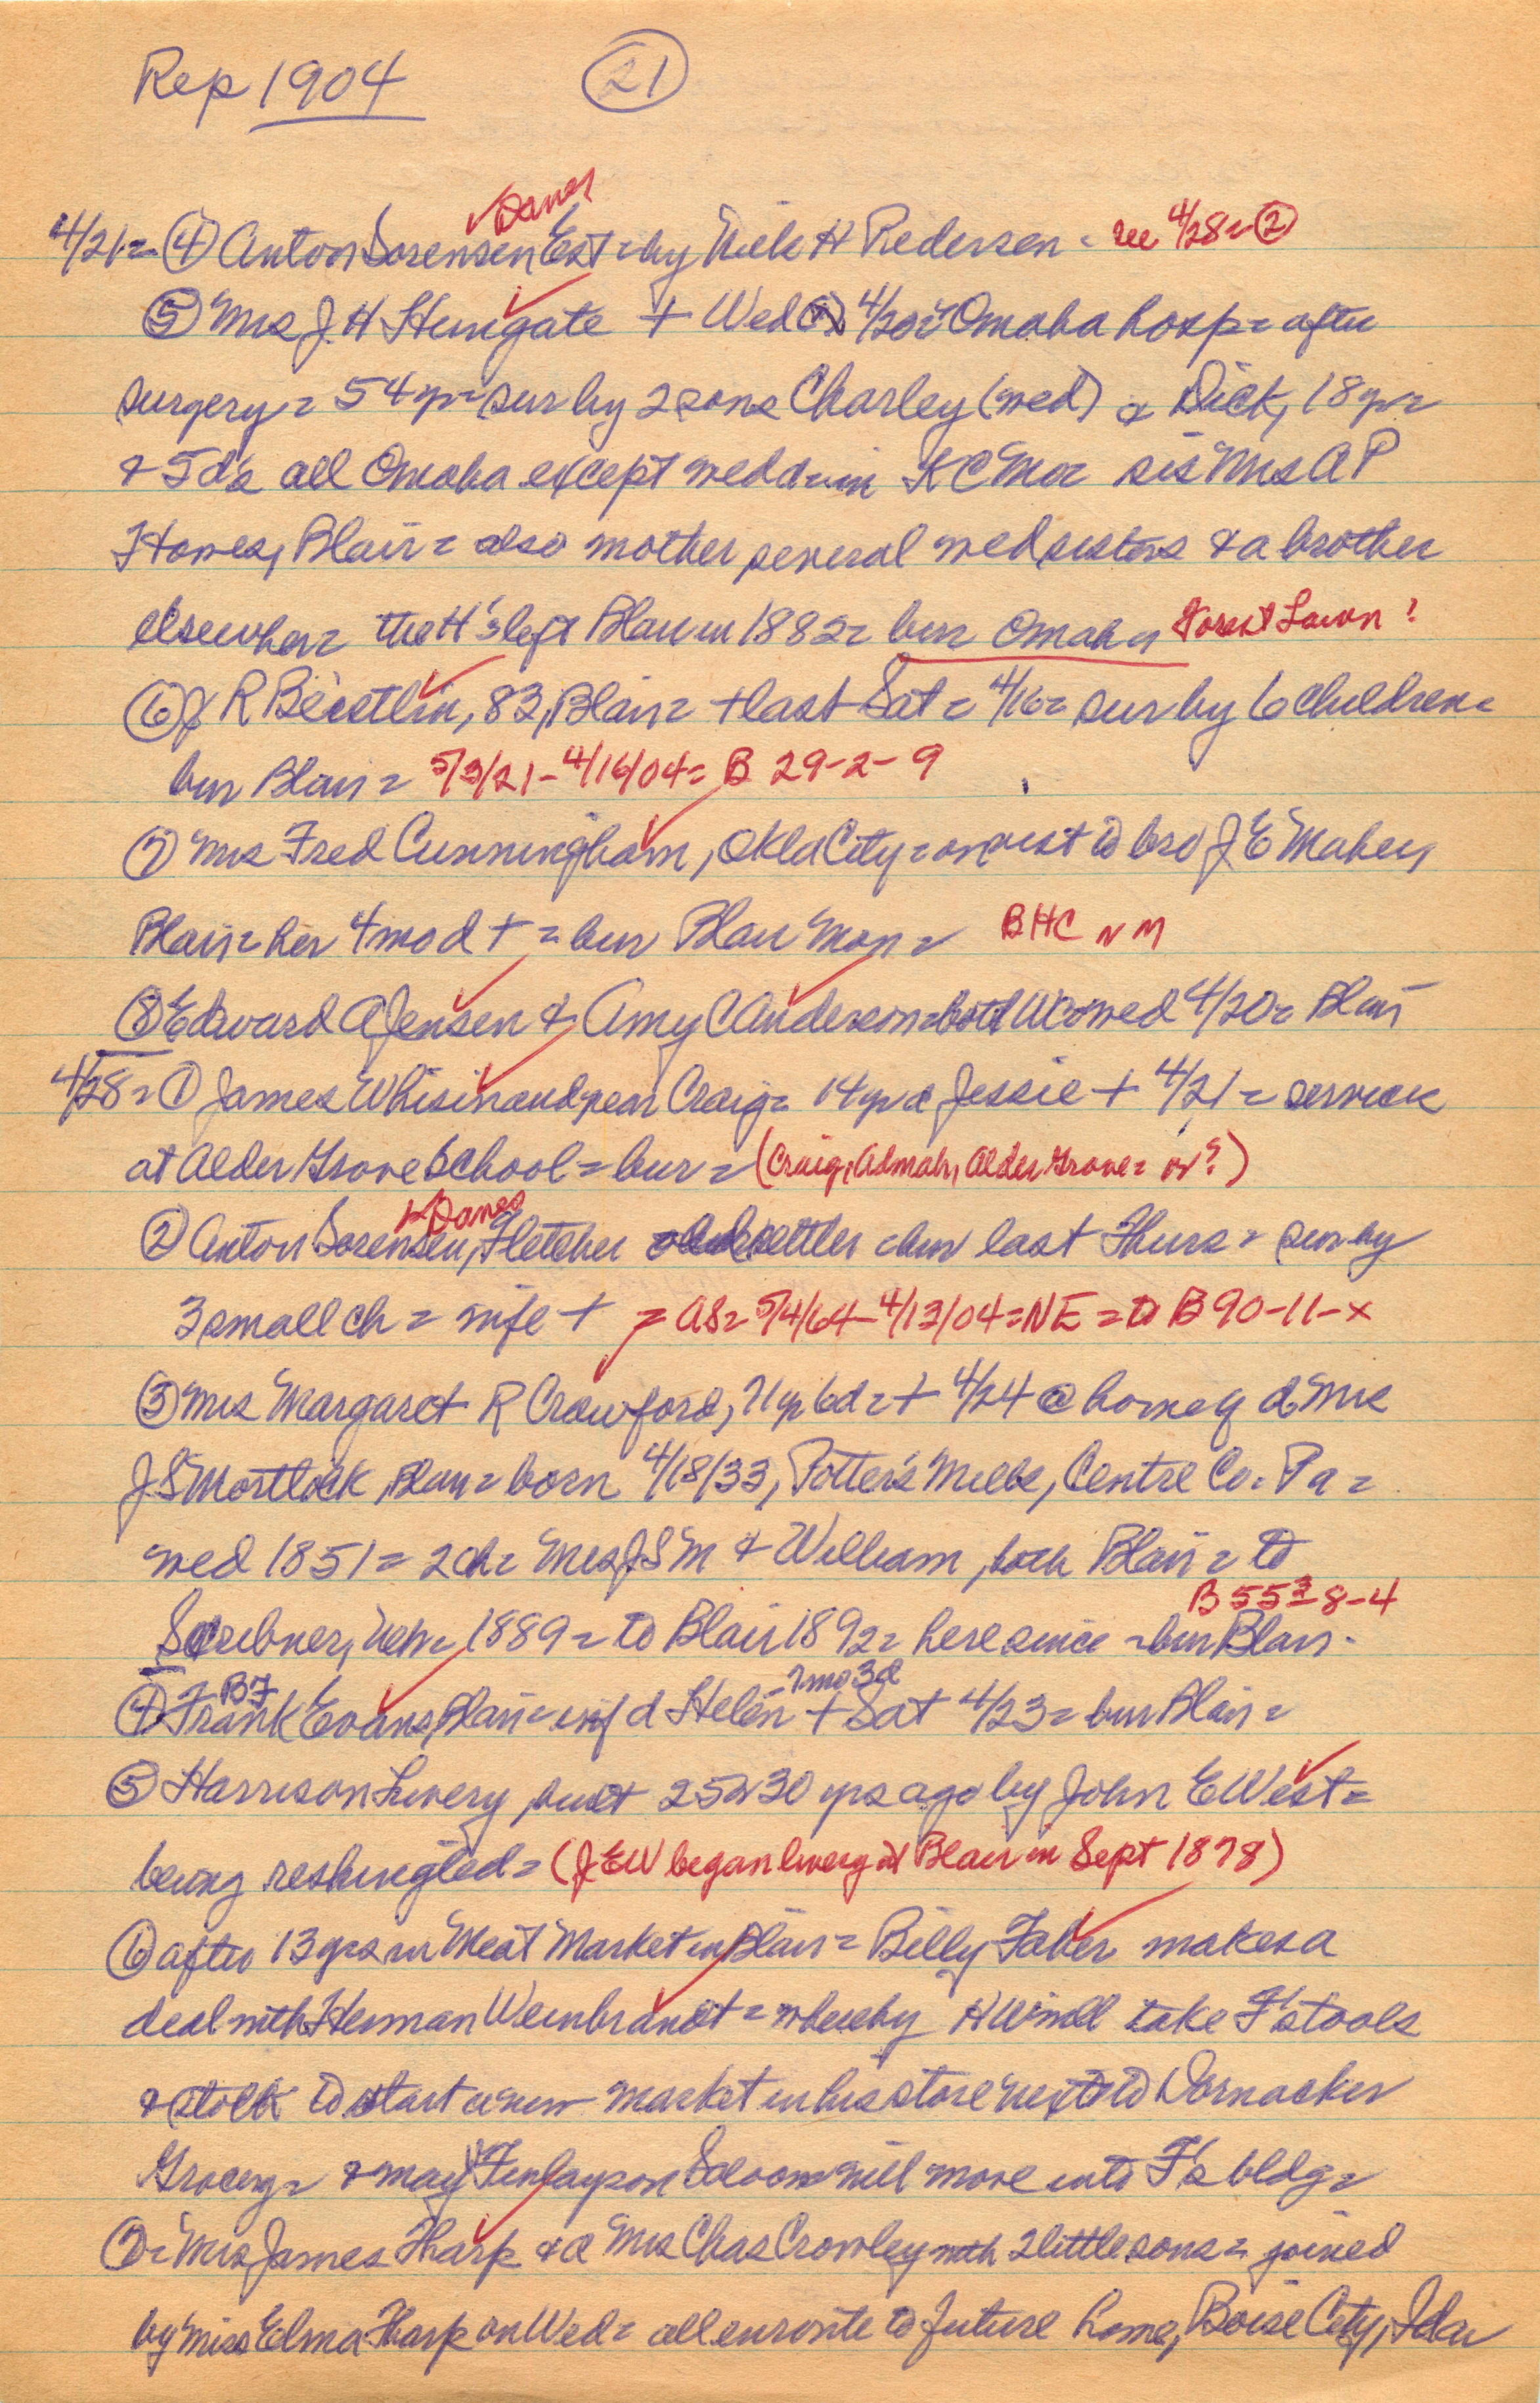 Rep 1904 (21)
✓Danes
4/21= (4) Anton Sorensen Est = by Niels H Pedersen = see 4/28= (2)
(5) Mrs J H Hungate + Wed 4/20 = Omaha hosp = after
surgery = 54 yr = sur by 2 sons Charley (wed) & Dick, 18 yr =
& 5 d's all Omaha except wed d = in K C Mo = sis Mrs A P
Howes, Blair = also mother several wed sisters & a brother
elsewhere = the H's left Blair in 1882 = bur Omaha Forest Lawn ?
(6) J R Beestlin, 83, Blair = + last Sat = 4/16 = sur by 6 children =
bur Blair = 5/3/21 - 4/16/04 = B 29-2-9
(7) Mrs Fred Cunningham, Okla City = on visit to bro J E Maher,
Blair = her 4 mo d + = bur Blair Mon = BHC N M
(8) Edward A Jensen & Amy C Anderson = both WCo wed 4/20 = Blair
4/28 = (1) James Whisinand near Craig = 14 yr d Jessie + 4/21 = services
at Alder Grove School = bur = (Craig, Admah, Alder Grove = or ?)
✓Danes
(2) Anton Sorensen, Fletcher old settler = bur last Thurs = sur by
3 small ch = wife + = AS = 5/4/64 - 4/13/04 = NE = to B 90-11-x
(3) Mrs Margaret R Crawford, 71 yr 6 d = + 4/24 @ home of d Mrs
J S Mortlock, Blair = born 4/18/33, Potter's Mills, Centre Co. Pa =
wed 1851 = 2 ch = Mrs J S M & William, both Blair = to
B 55 3 8-4
Scribner, Neb = 1889 = to Blair 1892 = here since = bur Blair.
BF 7 mo 3 d
(4) Frank Evans, Blair = inf d Helen + Sat 4/23 = bur Blair =
(5) Harrison Livery, built 25 or 30 yrs ago by John E West =
being reshingled = (JEW began livery at Blair in Sept 1878)
(6) after 13 yrs in Meat Market in Blair = Billy Faber makes a
deal with Herman Weinbrandt = whereby HW will take F's tools
& stock to start a new market in his store next to Dornacker
Grocery = & may Finlayson Saloon will move into F's bldg =
(7) = Mrs James Tharp & d Mrs Chas Crowley with 2 little sons = joined
by Miss Elma Tharp on Wed = all enroute to future home, Boise City, Idaw